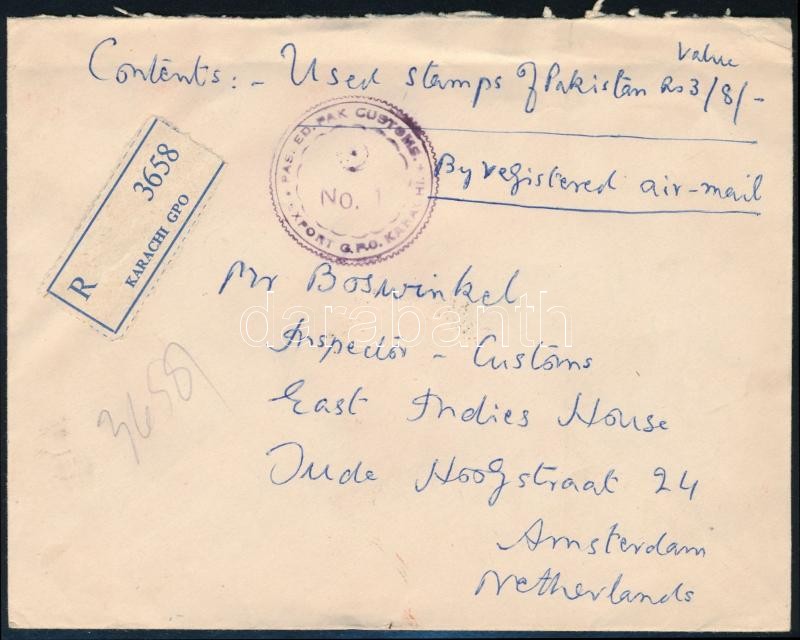 Value
Contents:- Used stamps of Pakistan Rs 3/8/-
PASSED. PAK CUSTOMS.
No. 1
EXPORT G.P.O. KARACHI.
By registered air-mail
R 3658
KARACHI GPO
Mr Boswinkel
darabanth
Inspector - Customs
East Indies House
Oude Hoogstraat 24
Amsterdam
Netherlands
3658